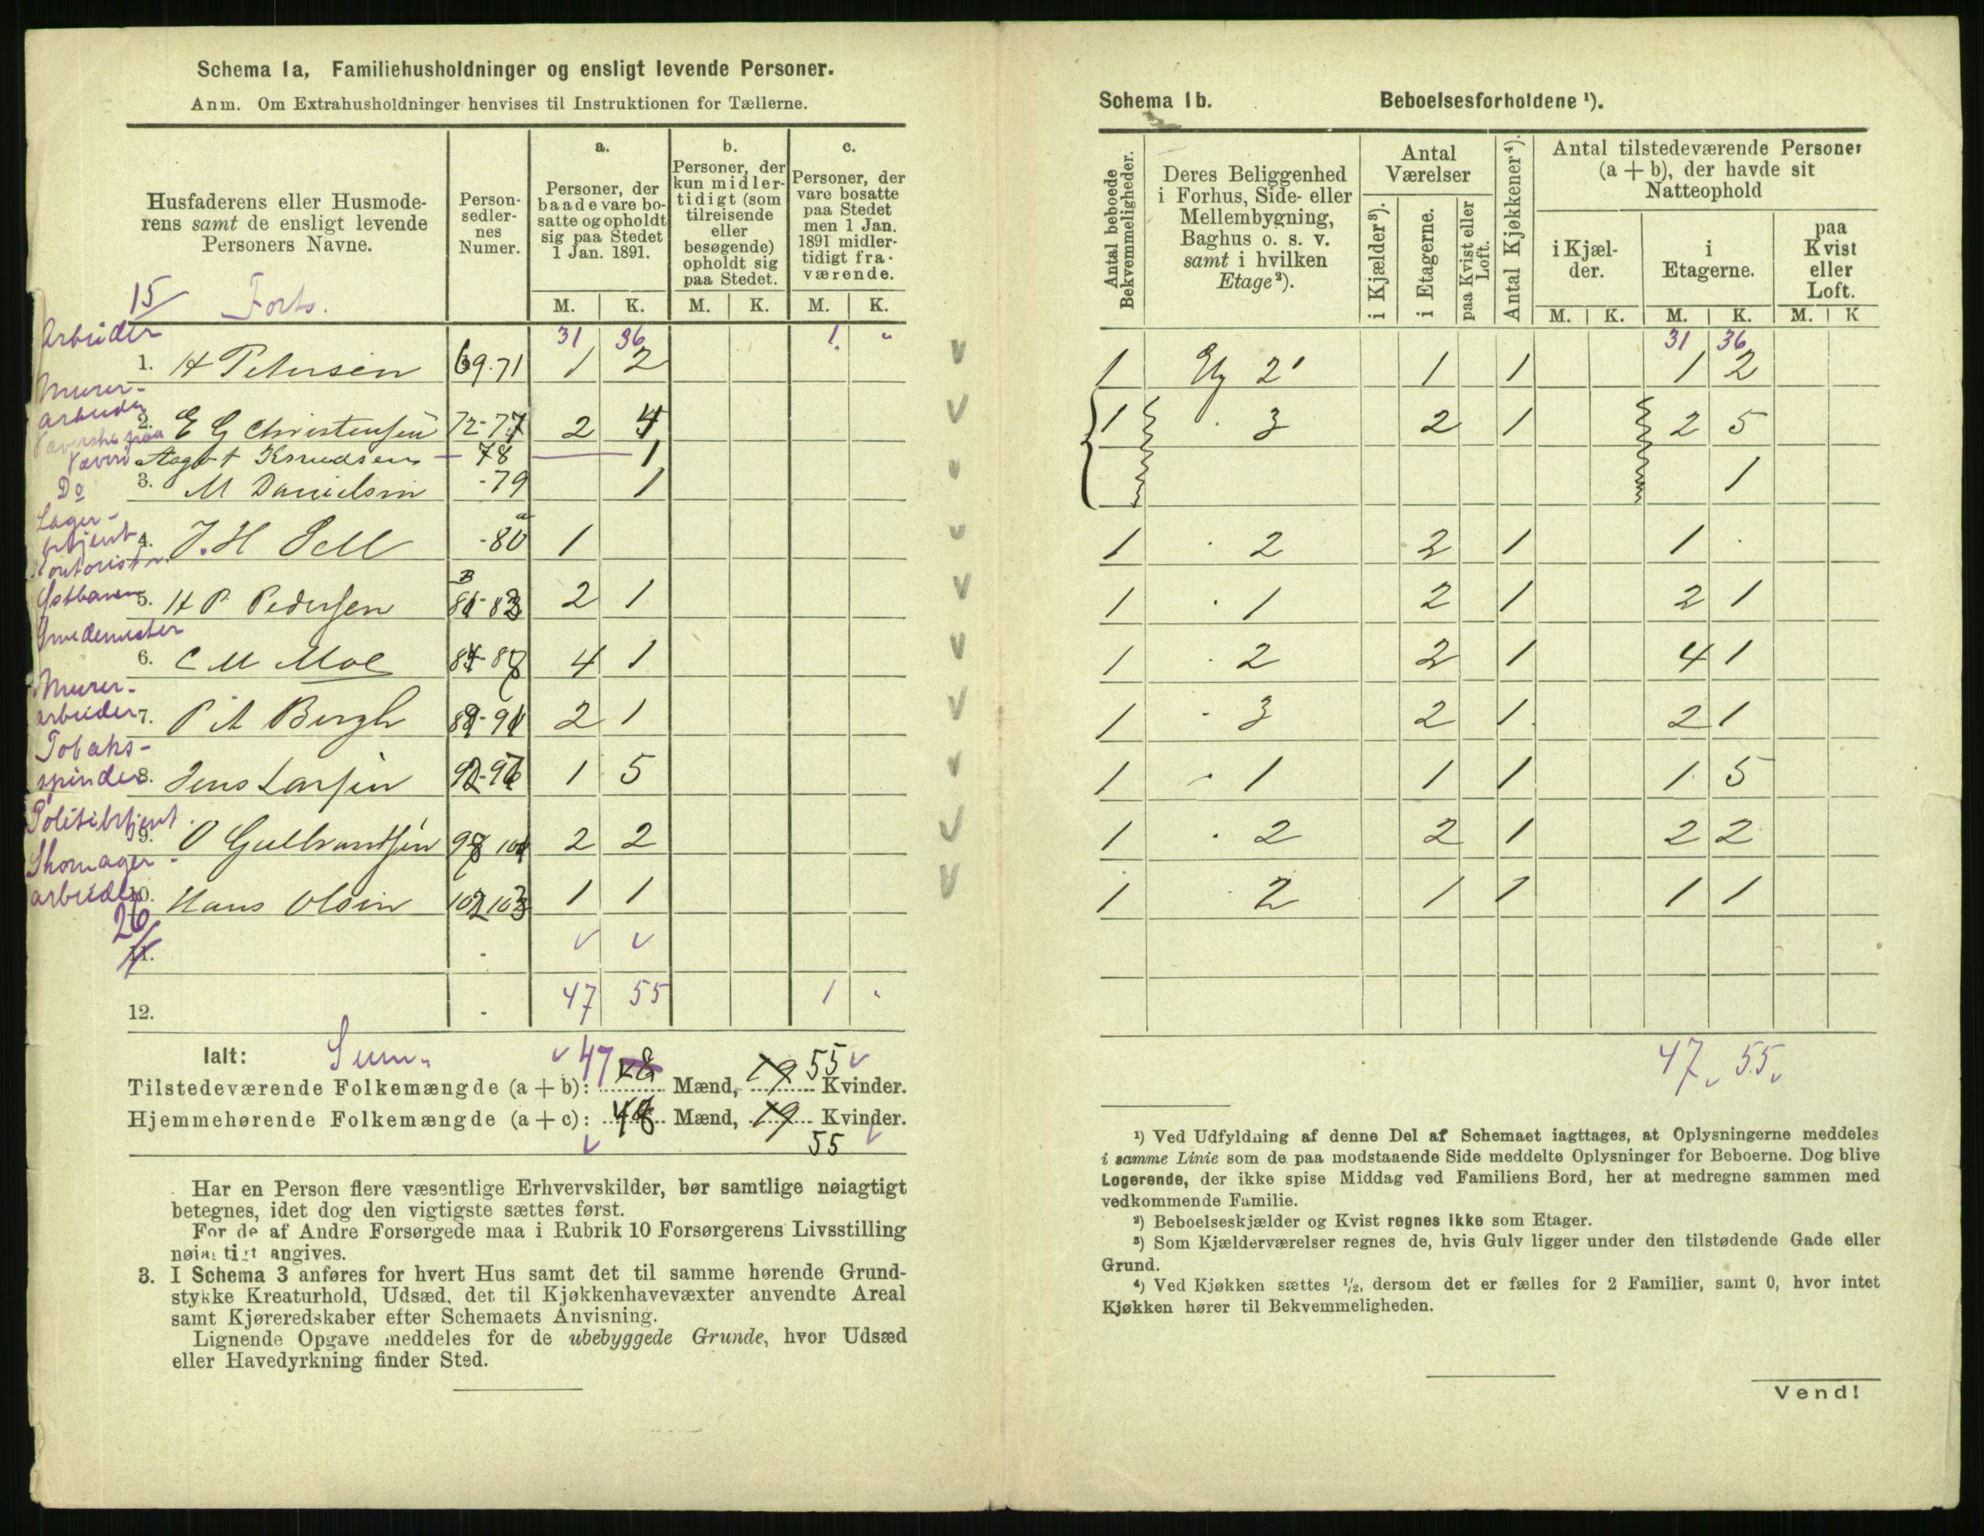 Schema 1a, Familiehusholdninger og ensligt levende Personer.
Anm. Om Extrahusholdninger henvises til Instruktionen for Tællerne.
Husfaderens eller Husmoderens samt de ensligt levende Personers Navne.
Personsedlernes Numer.
a.
Personer, der baade vare bosatte og opholdt sig paa Stedet 1 Jan. 1891.
b.
Personer, der kun midlertidigt (som tilreisende eller besøgende) opholdt sig paa Stedet.
c.
Personer, der vare bosatte paa Stedet men 1 Jan. 1891 midlertidigt fraværende.
M. K. M. K. M. K.
15 Forts. 31 36 1 "
Arbeider
1. H Petersen 69-71 1 2
Murerarbeider
2. E G Christensen 72-77 2 4
Væverske paa Væveri Aagot Knudsen - 78 1
Do 3. M Danielsen -79 1
Lagerbetjent
4. J. H Sell -80 a 1
Kontorist v. Østbanen
5. H P Pedersen B 81-83 2 1
Smedemester
6. C M Moe 84-88 4 1
Murerarbeider
7. P A Bergh 89-91 2 1
Tobaksspinder
8. Jens Larsen 92-97 1 5
Politibetjent
9. O Gulbrandsen 98 101 2 2
Skomagerarbeider
10. Hans Olsen 102 103 1 1
26
11. v v
12. 47 55 1 "
Ialt: Sum
Tilstedeværende Folkemængde (a + b): 47 Mænd, 19 55 Kvinder.
Hjemmehørende Folkemængde (a + c): 48 Mænd, 19 Kvinder.
55
Har en Person flere væsentlige Erhvervskilder, bør samtlige nøiagtigt
betegnes, idet dog den vigtigste sættes først.
For de af Andre Forsørgede maa i Rubrik 10 Forsørgerens Livsstilling
nøiagtigt angives.
3. I Schema 3 anføres for hvert Hus samt det til samme hørende Grund-
stykke Kreaturhold, Udsæd, det til Kjøkkenhavevæxter anvendte Areal
samt Kjøreredskaber efter Schemaets Anvisning.
Lignende Opgave meddeles for de ubebyggede Grunde, hvor Udsæd
eller Havedyrkning finder Sted.
Schema 1b. Beboelsesforholdene ¹).
Antal beboede Bekvemmeligheder.
Deres Beliggenhed i Forhus, Side- eller Mellembygning, Baghus o. s. v. samt i hvilken Etage²).
Antal Værelser
i Kjælder³).
i Etagerne.
paa Kvist eller Loft.
Antal Kjøkkener⁴).
Antal tilstedeværende Personer (a + b), der havde sit Natteophold
i Kjælder.
i Etagerne.
paa Kvist eller Loft.
M. K. M. K. M. K
31 36
1 2 1 1 1 2
1 3 2 1 2 5
1
1 2 2 1 1
1 1 2 1 2 1
1 2 2 1 4 1
1 3 2 1 2 1
1 1 1 1 1 5
1 2 2 1 2 2
1 2 1 1 1 1
47 55
¹) Ved Udfyldning af denne Del af Schemaet iagttages, at Oplysningerne meddeles
i samme Linie som de paa modstaaende Side meddelte Oplysninger for Beboerne. Dog blive
Logerende, der ikke spise Middag ved Familiens Bord, her at medregne sammen med
vedkommende Familie.
²) Beboelseskjælder og Kvist regnes ikke som Etager.
³) Som Kjælderværelser regnes de, hvis Gulv ligger under den tilstødende Gade eller
Grund.
⁴) Ved Kjøkken sættes ½, dersom det er fælles for 2 Familier, samt 0, hvor intet
Kjøkken hører til Bekvemmeligheden.
Vend!